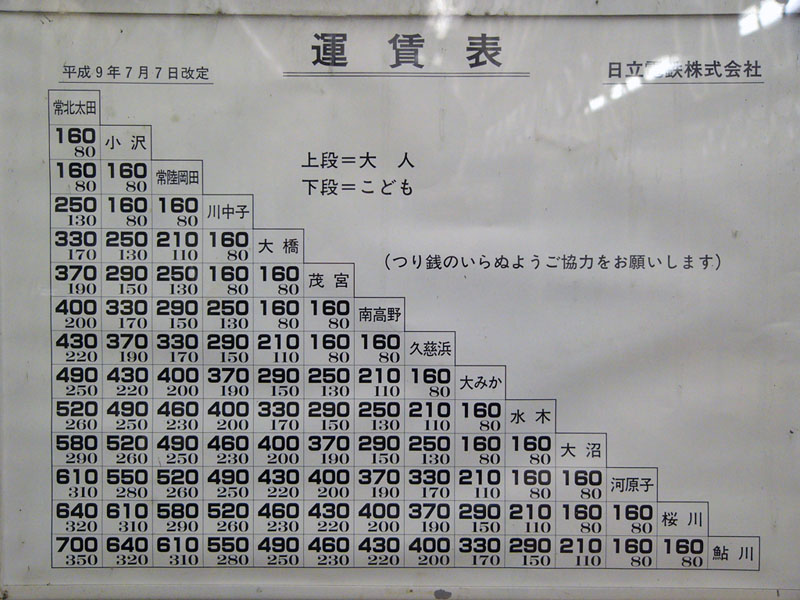 運賃表
平成9年7月7日改定
日立電鉄株式会社
常北太田
160 小沢
80
160 160 常陸岡田
80 80
250 160 160 川中子
130 80 80
330 250 210 160 大橋
170 130 110 80
370 290 250 160 160 茂宮
190 150 130 80 80
400 330 290 250 160 160 南高野
200 170 150 130 80 80
430 370 330 290 210 160 160 久慈浜
220 190 170 150 110 80 80
490 430 400 370 290 250 210 160 大みか
250 220 200 190 150 130 110 80
520 490 460 400 330 290 250 210 160 水木
260 250 230 200 170 150 130 110 80
580 520 490 460 400 370 290 250 160 160 大沼
290 260 250 230 200 190 150 130 80 80
610 550 520 490 430 400 370 330 210 160 160 河原子
310 280 260 250 220 200 190 170 110 80 80
640 610 580 520 460 430 400 370 290 210 160 160 桜川
320 310 290 260 230 220 200 190 150 110 80 80
700 640 610 550 490 460 430 400 330 290 210 160 160 鮎川
350 320 310 280 250 230 220 200 170 150 110 80 80
上段=大人
下段=こども
(つり銭のいらぬようご協力をお願いします)